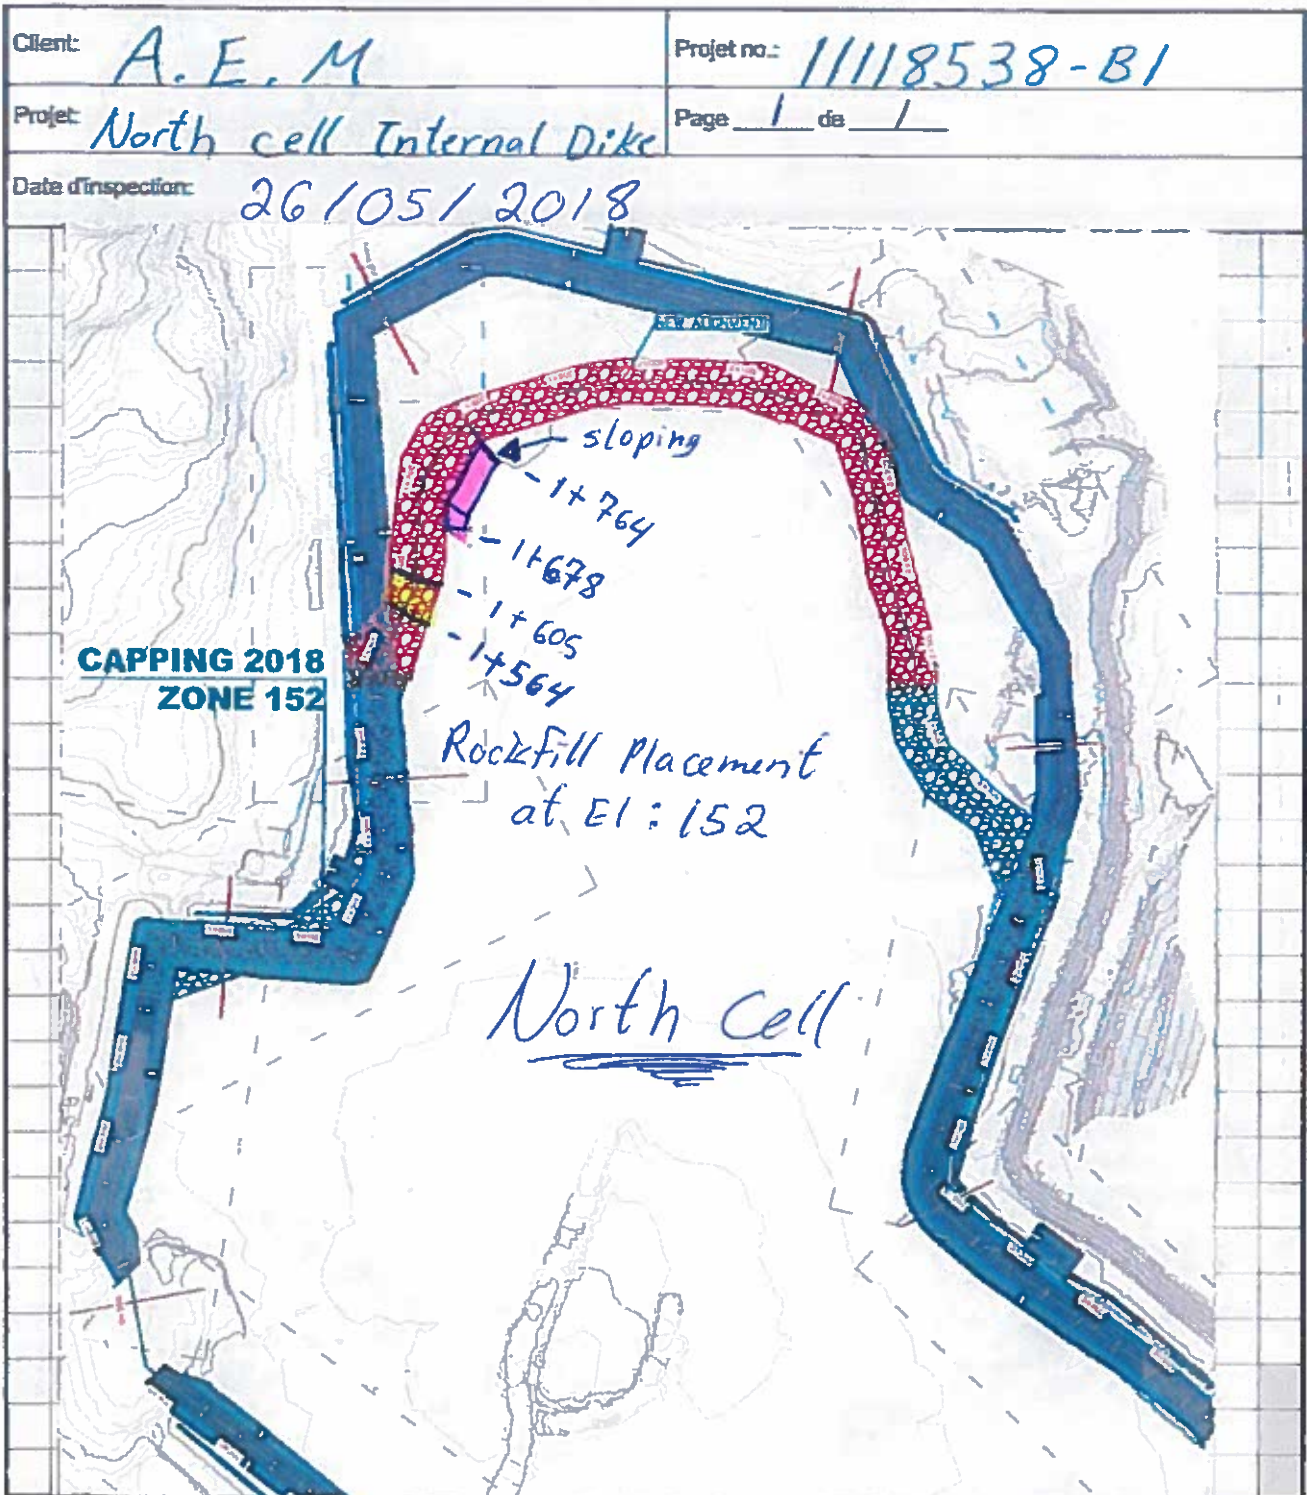 Client: A.E.M
Projet no.: 11118538-B1
Projet: North cell Internal Dike
Page 1 de 1
Date d'inspection: 26/05/2018
NEW ALIGNMENT
sloping
1+764
1+678
1+605
1+564
CAPPING 2018
ZONE 152
Rockfill Placement
at El: 152
North Cell